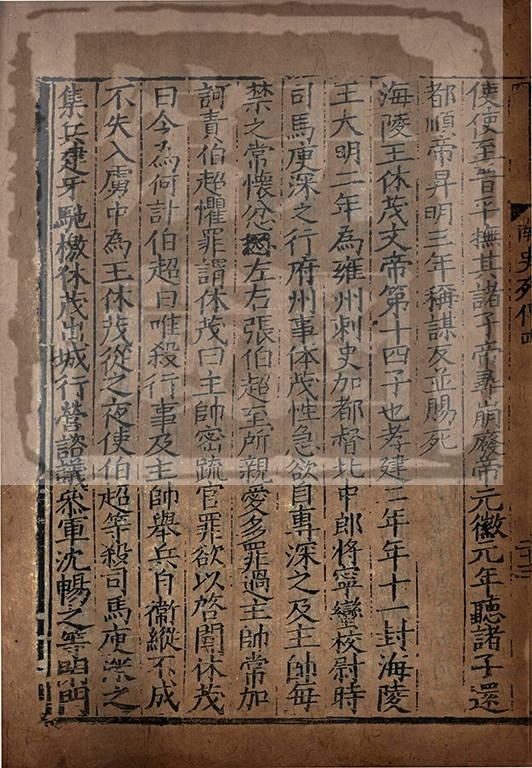 使使至昔平撫其諸子帝尋崩廢帝元徽元年聽諸子還
都順帝昇明三年稱謀反並賜死
海陵王休茂文帝第十四子也孝建二年年十一封海陵
王大明二年為雍州刺史加都督北中郎將寧蠻校尉時
司馬庾深之行府州事休茂性急欲自專深之及主帥每
禁之常懷忿怒左右張伯超至所親愛多罪過主帥常加
訶責伯超懼罪謂休茂曰主帥密疏官罪欲以啓聞休茂
曰今為何計伯超曰唯殺行事及主帥舉兵自衞縱不成
不失入虜中為王休茂從之夜使伯超等殺司馬庾深之
集兵建牙馳檄休茂出城行營諮議參軍沈暢之等閉門
南史列傳